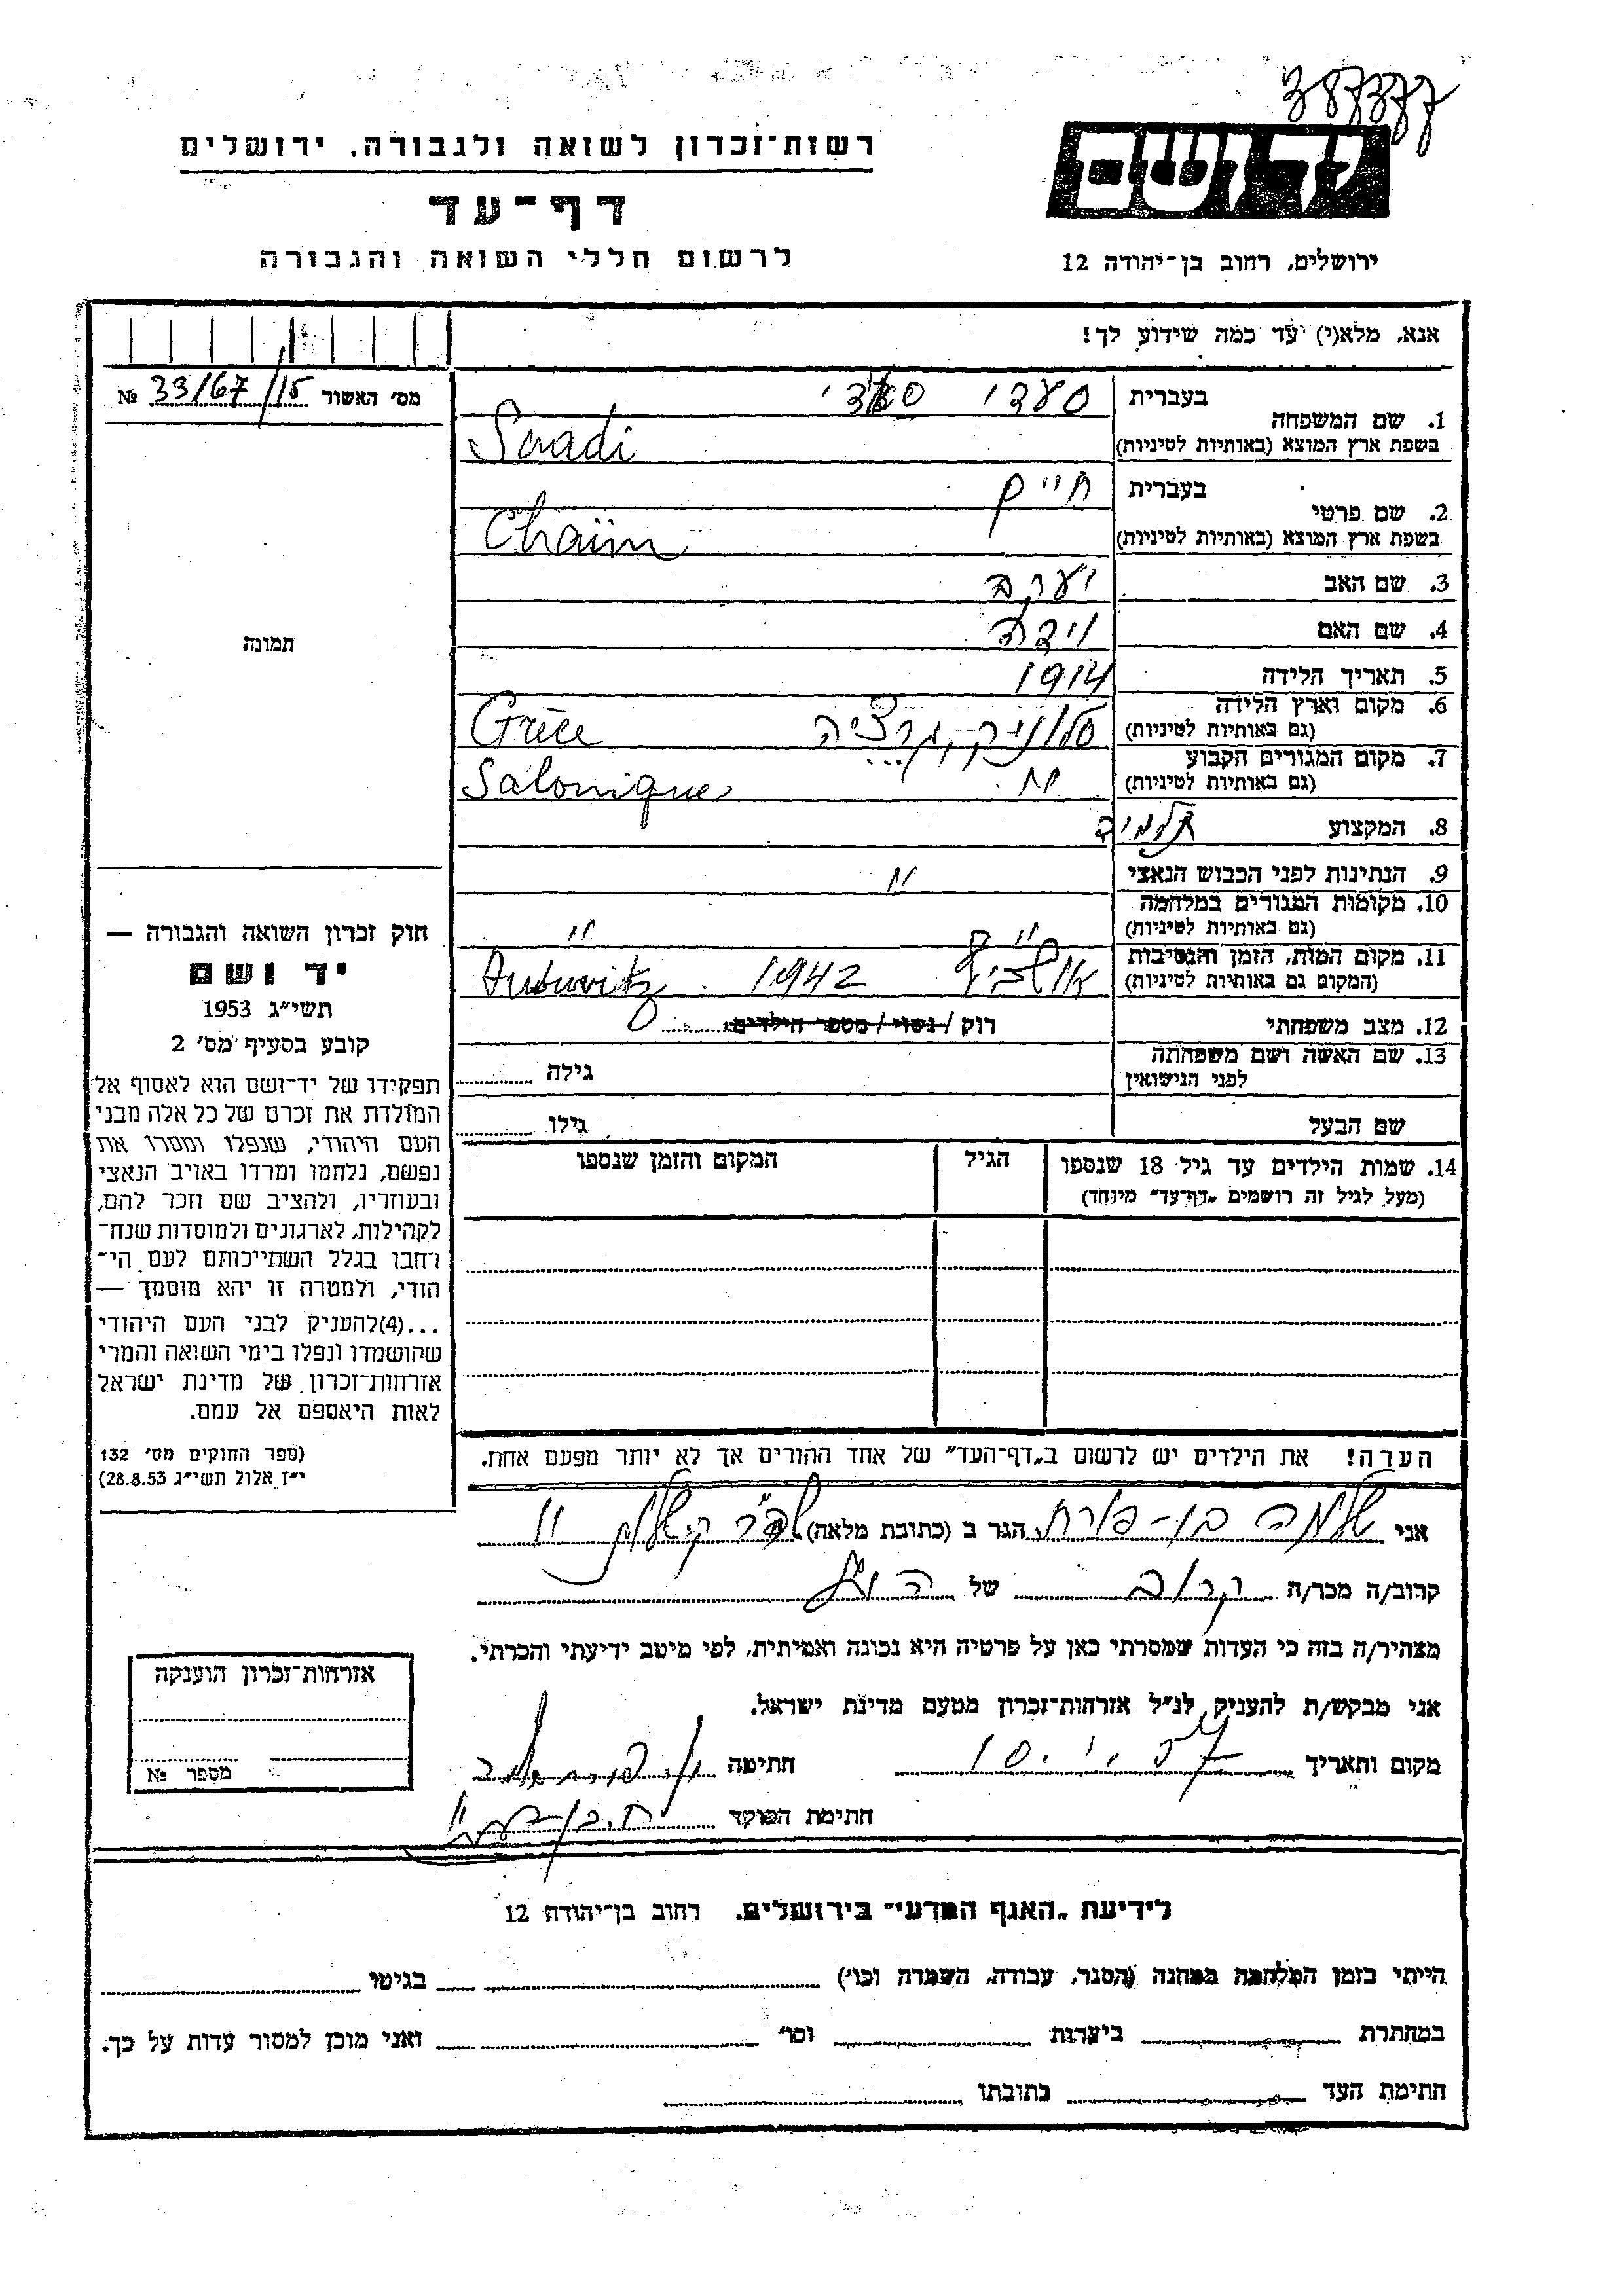 387377
רשות־זכרון לשואה ולגבורה, ירושלים
יד ושם
דף־עד
לרשום חללי השואה והגבורה
ירושלים, רחוב בן־יהודה 12
אנא, מלא(י) עד כמה שידוע לך!
מס׳ האשור 33/67/15 №
1. שם המשפחה
בעברית סעדי סעדי
בשפת ארץ המוצא (באותיות לטיניות) Saadi
2. שם פרטי
בעברית חיים
בשפת ארץ המוצא (באותיות לטיניות) Chaïm
3. שם האב יעקב
4. שם האם וידה
5. תאריך הלידה 1914
6. מקום וארץ הלידה סלוניק, גרציה Grèce
(גם באותיות לטיניות)
7. מקום המגורים הקבוע " Salonique
(גם באותיות לטיניות)
8. המקצוע תלמיד
9. הנתינות לפני הכבוש הנאצי "
10. מקומות המגורים במלחמה
(גם באותיות לטיניות) " "
11. מקום המות, הזמן והנסיבות
(המקום גם באותיות לטיניות) אושביץ 1942
12. מצב משפחתי רוק / נשוי / מספר הילדים
13. שם האשה ושם משפחתה
לפני הנישואין גילה
שם הבעל גילו
14. שמות הילדים עד גיל 18 שנספו הגיל המקום והזמן שנספו
(מעל לגיל זה רושמים „דף־עד״ מיוחד)
הערה! את הילדים יש לרשום ב„דף־העד״ של אחד ההורים אך לא יותר מפעם אחת.
תמונה
חוק זכרון השואה והגבורה —
יד ושם
תשי״ג 1953
קובע בסעיף מס׳ 2
תפקידו של יד־ושם הוא לאסוף אל
המולדת את זכרם של כל אלה מבני
העם היהודי, שנפלו ומסרו את
נפשם, נלחמו ומרדו באויב הנאצי
ובעוזריו, ולהציב שם וזכר להם,
לקהילות, לארגונים ולמוסדות שנח־
רחבו בגלל השתייכותם לעם הי־
הודי, ולמטרה זו יהא מוסמך —
...(4)להעניק לבני העם היהודי
שהושמדו ונפלו בימי השואה והמרי
אזרחות־זכרון של מדינת ישראל
לאות היאספם אל עמם.
(ספר החוקים מס׳ 132
י״ז אלול תשי״ג 28.8.53)
אני שלמה בן-פורת הגר ב (כתובת מלאה)
קרוב/ה מכר/ה קרוב של
מצהיר/ה בזה כי העדות שמסרתי כאן על פרטיה היא נכונה ואמיתית, לפי מיטב ידיעתי והכרתי.
אני מבקש/ת להעניק לנ״ל אזרחות־זכרון מטעם מדינת ישראל.
מקום ותאריך חתימה
חתימת הפוקד
אזרחות־זכרון הוענקה
מספר №
לידיעת „האגף המדעי״ בירושלים, רחוב בן־יהודה 12
הייתי בזמן המלחמה במחנה (הסגר, עבודה, השמדה וכו׳) בגיטו
במחתרת ביערות וכו׳ ואני מוכן למסור עדות על כך.
חתימת העד כתובתו